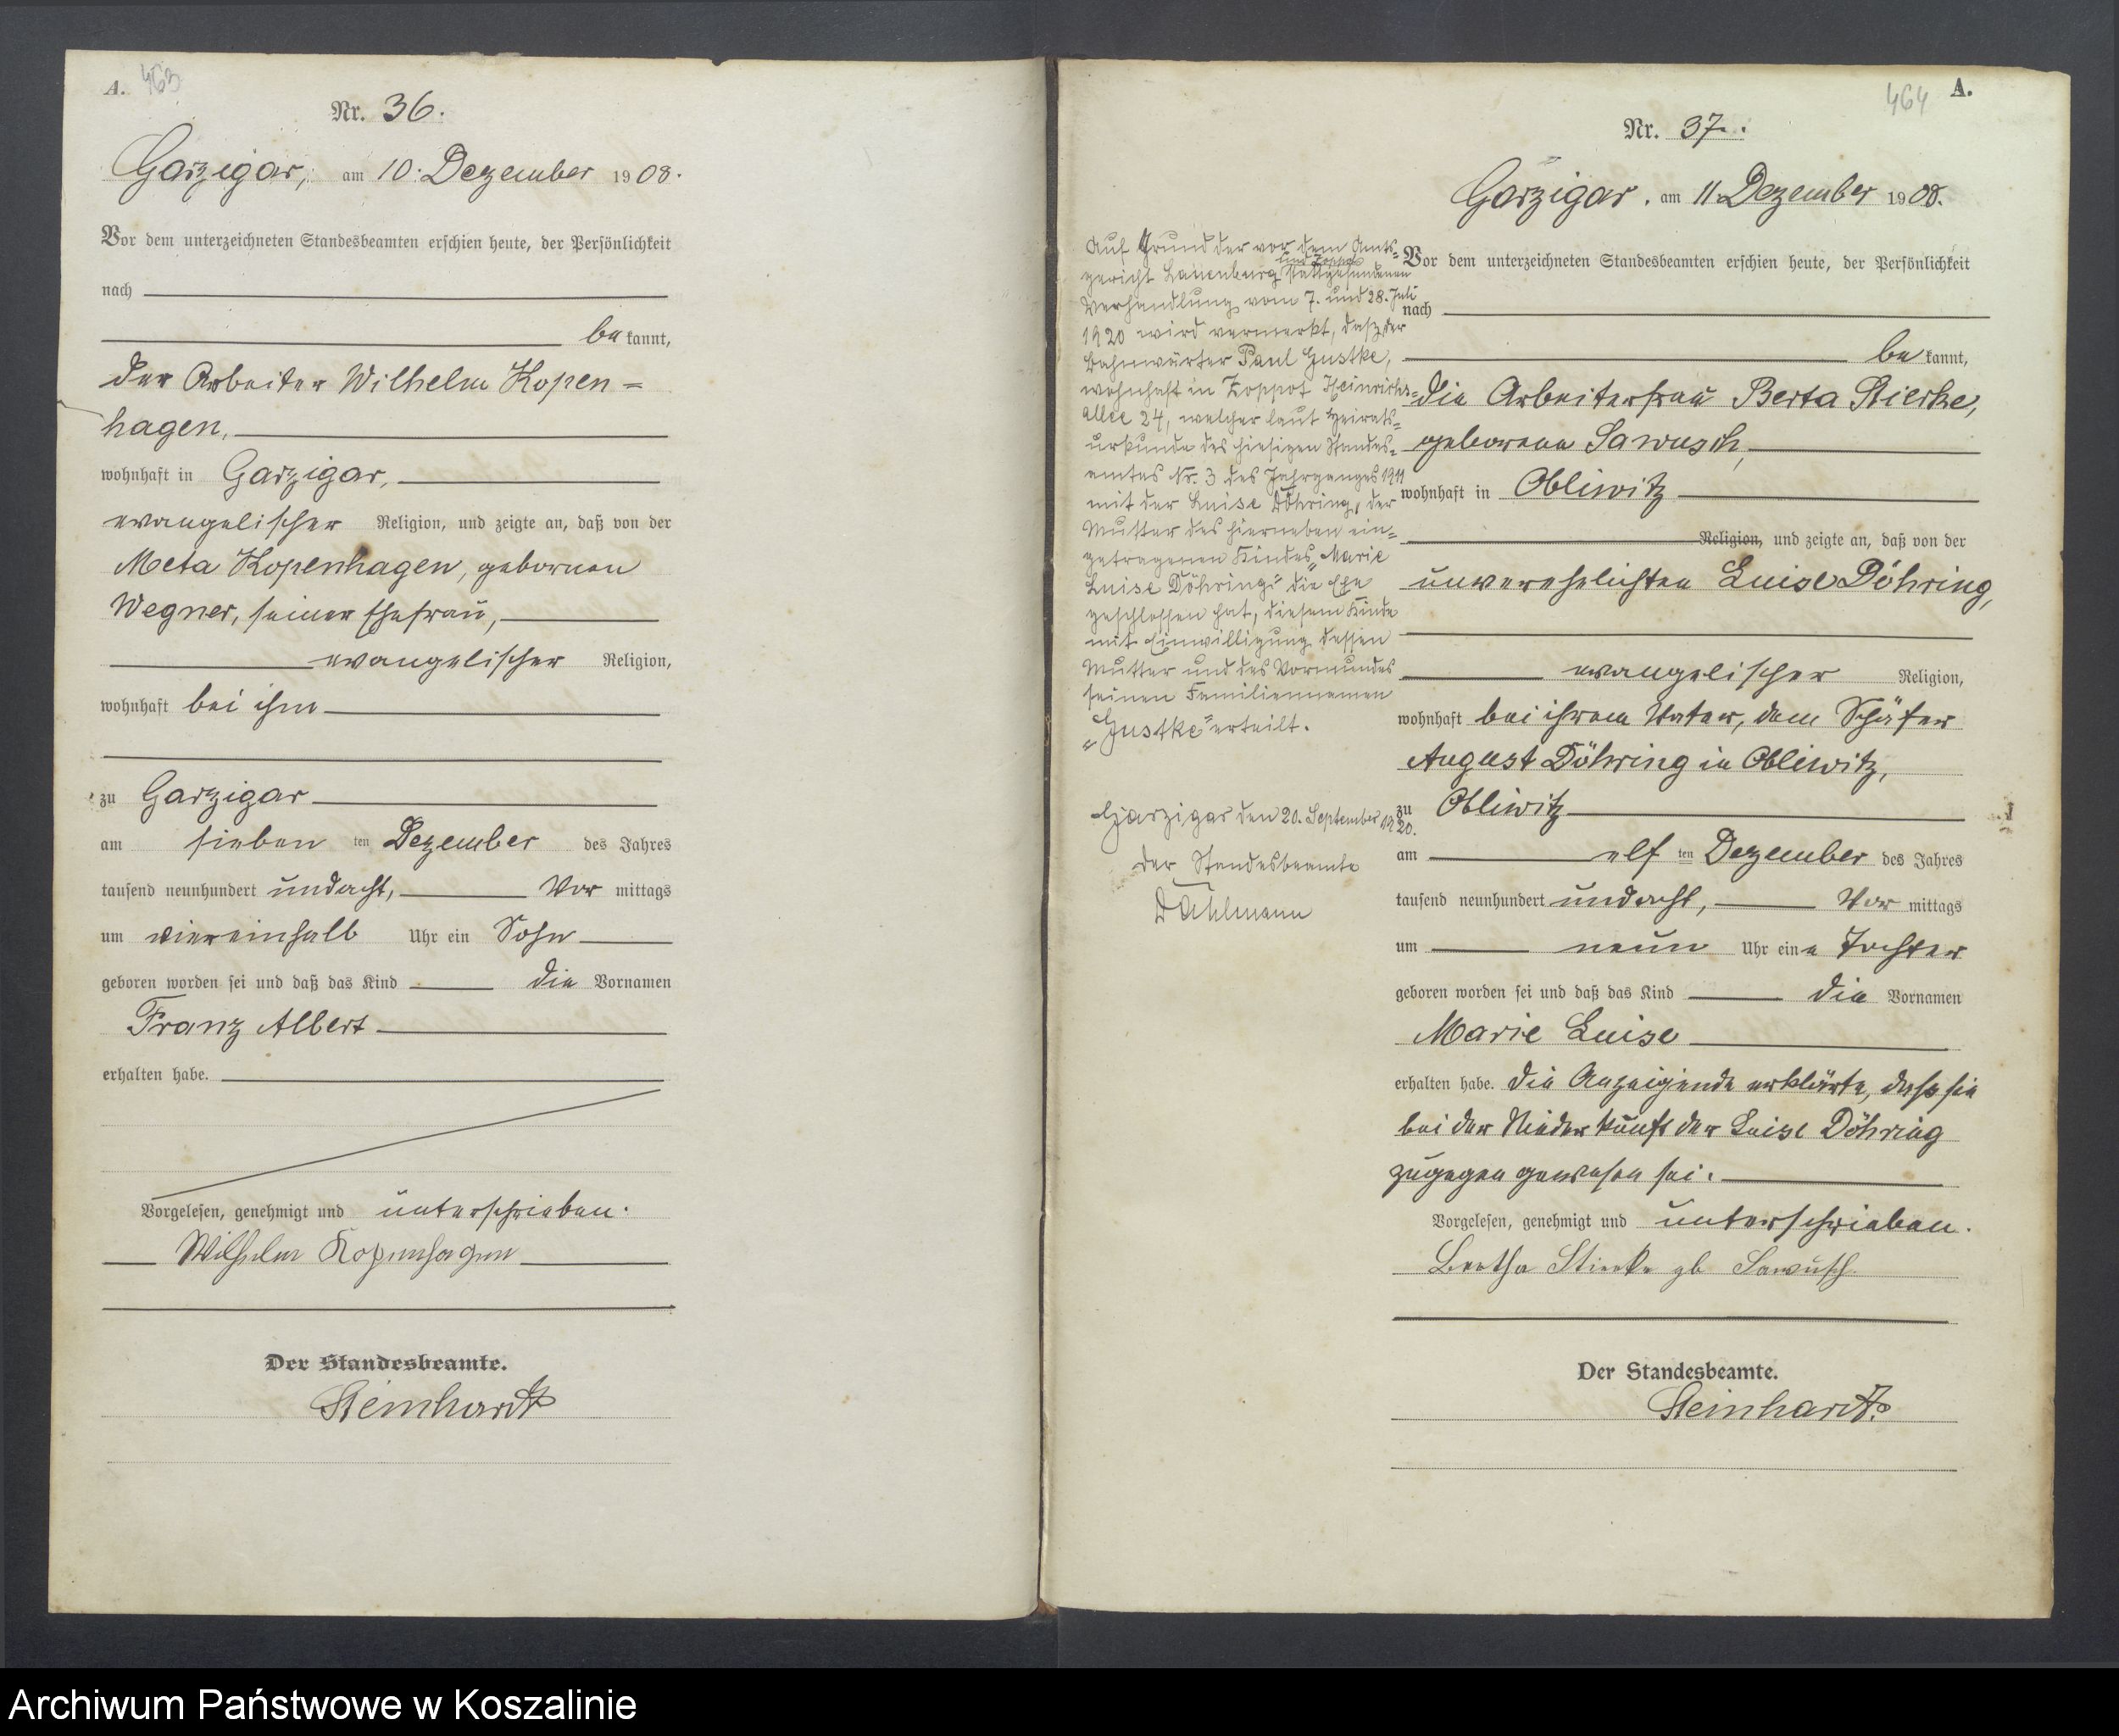 A. 463
Nr. 36.
Garzigar, am 10. Dezember 1908.
Vor dem unterzeichneten Standesbeamten erschien heute, der Persönlichkeit
nach
be kannt,
der Arbeiter Wilhelm Kopen=
hagen,
wohnhaft in Garzigar,
evangelischer Religion, und zeigte an, daß von der
Meta Kopenhagen, gebornen
Wegner, seiner Ehefrau,
evangelischer Religion,
wohnhaft bei ihm
zu Garzigar
am sieben ten Dezember des Jahres
tausend neunhundert undacht, Vor mittags
um viereinhalb Uhr ein Sohn
geboren worden sei und daß das Kind die Vornamen
Franz Albert
erhalten habe.
Vorgelesen, genehmigt und unterschrieben.
Wilhelm Kopenhagen
Der Standesbeamte.
Steinhardt
464 A.
Nr. 37.
Garzigar, am 11. Dezember 1908.
Auf Grund der vor dem Amts=
gericht Lauenburg und Zoppot stattgefundenen
Verhandlung vom 7. und 28. Juli
1920 wird vermerkt, daß der
Bahnwärter Paul Gustke,
wohnhaft in Zoppot Heinrichs=
allee 24, welcher laut Heirats=
urkunde des hiesigen Standes=
amtes Nr. 3 des Jahrganges 1911
mit der Luise Döhring, der
Mutter des hierneben ein=
getragenen Kindes „Marie
Luise Döhring“ die Ehe
geschlossen hat, diesem Kinde
mit Einwilligung dessen
Mutter und des Vormundes
seinen Familiennamen
„Gustke“ erteilt.
Garzigar den 20. September 1920.
Der Standesbeamte
Dahlmann
Vor dem unterzeichneten Standesbeamten erschien heute, der Persönlichkeit
nach
be kannt,
die Arbeiterfrau Berta Stierke,
geborene Sawusch,
wohnhaft in Obliwitz
Religion, und zeigte an, daß von der
unverehelichten Luise Döhring,
evangelischer Religion,
wohnhaft bei ihrem Vater, dem Schäfer
August Döhring in Obliwitz,
zu Obliwitz
am elf ten Dezember des Jahres
tausend neunhundert undacht, Vor mittags
um neun Uhr eine Tochter
geboren worden sei und daß das Kind die Vornamen
Marie Luise
erhalten habe. Die Anzeigende erklärte, dass sie
bei der Niederkunft der Luise Döhring
zugegen gewesen sei.
Vorgelesen, genehmigt und unterschrieben.
Bertha Stierke gb Sawusch
Der Standesbeamte.
Steinhardt.
Archiwum Państwowe w Koszalinie